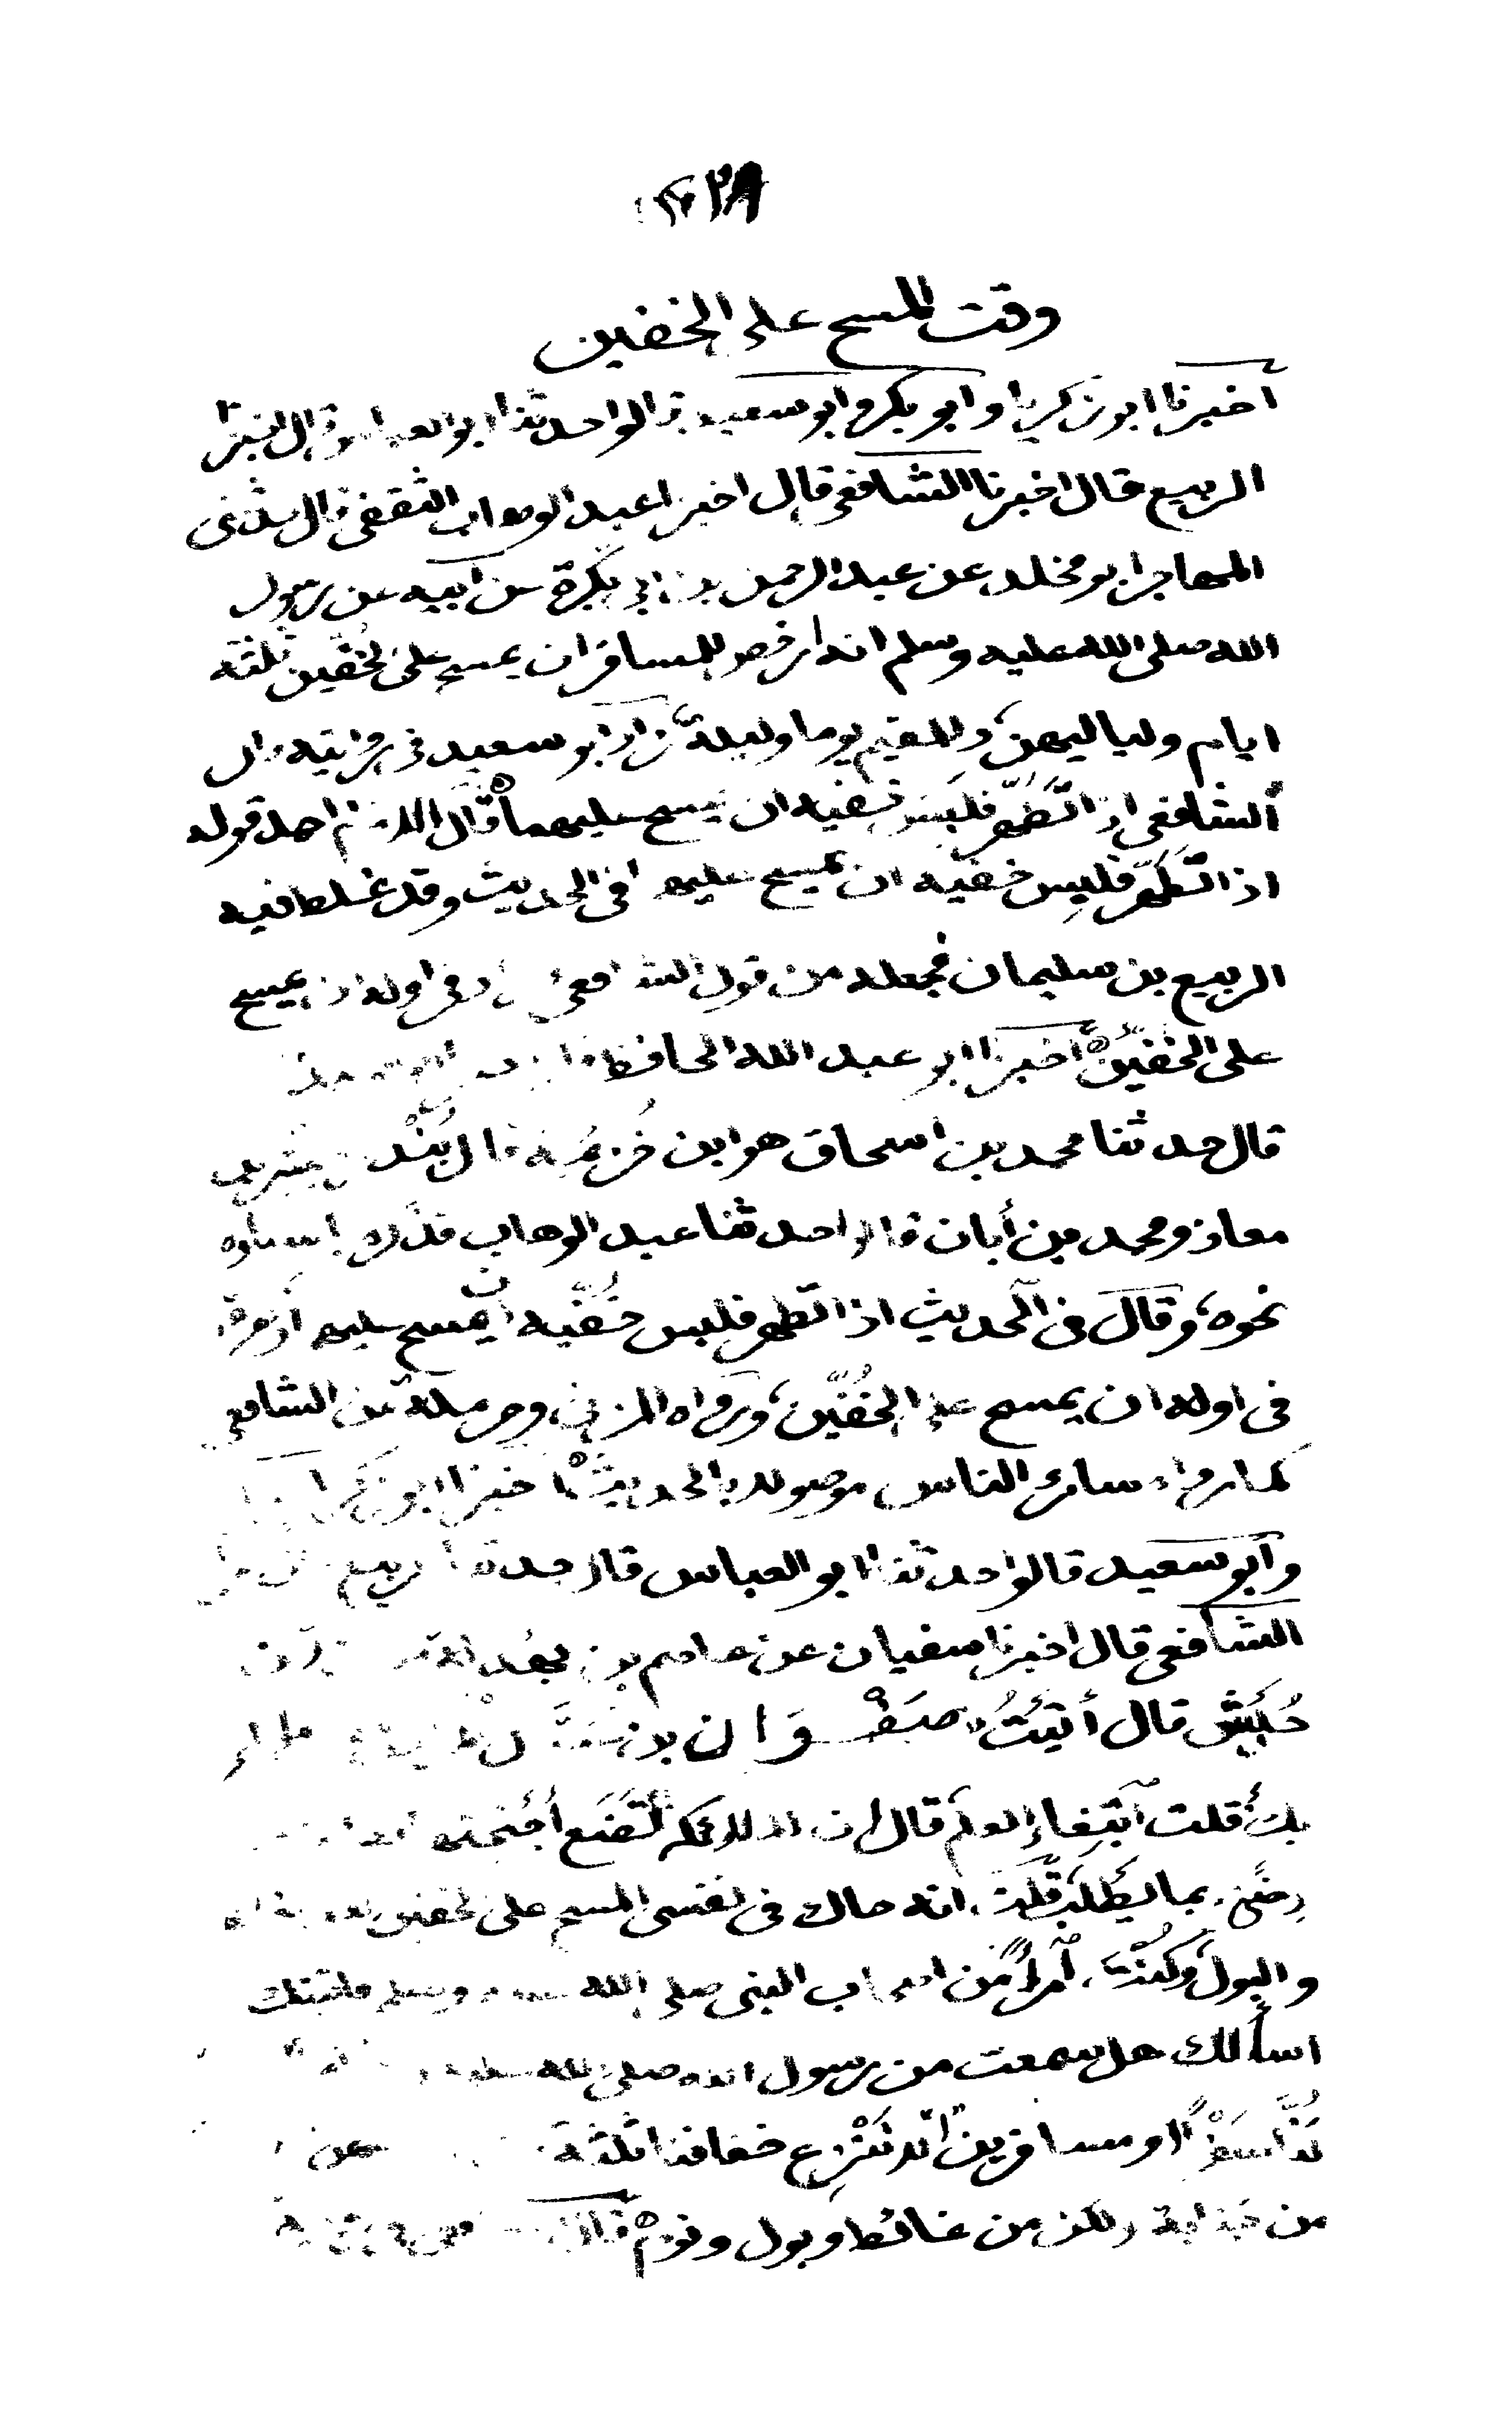 وقت المسح على الخفين
أخبرنا ابو زكريا وابو بكر وابو سعيد قالوا حدثنا ابو العباس قال اخبرنا
الربيع قال اخبرنا الشافعي قال اخبرنا عبد الوهاب الثقفي قال حدثني
المهاجر ابو مخلد عن عبد الرحمن بن ابي بكرة عن ابيه عن رسول
الله صلى الله عليه وسلم انه ارخص للمسافر ان يمسح على الخفين ثلثة
ايام ولياليهن وللمقيم يوما وليلة زاد ابو سعيد في روايته قال
الشافعي اذا تَطَهَّر فلَبِس خفيه ان يمسح عليهما قال الامام احمد قوله
اذا تَطَهَّر فلبِس خفيه ان يمسح عليهما في الحديث وقد غلط فيه
الربيع بن سليمان فجعله من قول الشافعي وزاد في اوله ان يمسح
على الخفين أخبرنا ابو عبد الله الحافظ
قال حدثنا محمد بن اسحاق هو ابن خُزيمة قال بُنْدار بشر بن
معاذ ومحمد بن أبان قالوا حدثنا عبد الوهاب فذكره باسناده
نحوه، وقال في الحديث اذا تطهر فلبس خُفَّيه ان يمسح عليهما
في اوله ان يمسح على الخُفَّين، ورواه المزني وحرملة عن الشافعي
كما رواه سائر الناس موصولا بالحديث أخبرنا ابو زكريا
وابو سعيد قالوا حدثنا ابو العباس قال حدثنا الربيع قال اخبرنا
الشافعي قال اخبرنا سفيان عن عاصم بن بهدلة عن زر بن
حُبَيْش قال أتيتُ صَفْوَان بن عسال فقال ما جاء
بك قلت ابتغاء العلم قال ان الملائكة لتَضَع أجنحتها لطالب العلم
رِضًى بما يَطلُب قلت انه حاك في نفسي المسح على الخفين بعد الغائط
والبول وكنتَ امرأً من اصحاب النبي صلى الله عليه وسلم فاتيتك
اسألك هل سمعت من رسول الله صلى الله عليه
سَفْرًا او مسافرين الا ننزع خفافنا ثلثة
من جنابة ولكن من غائط وبول ونوم